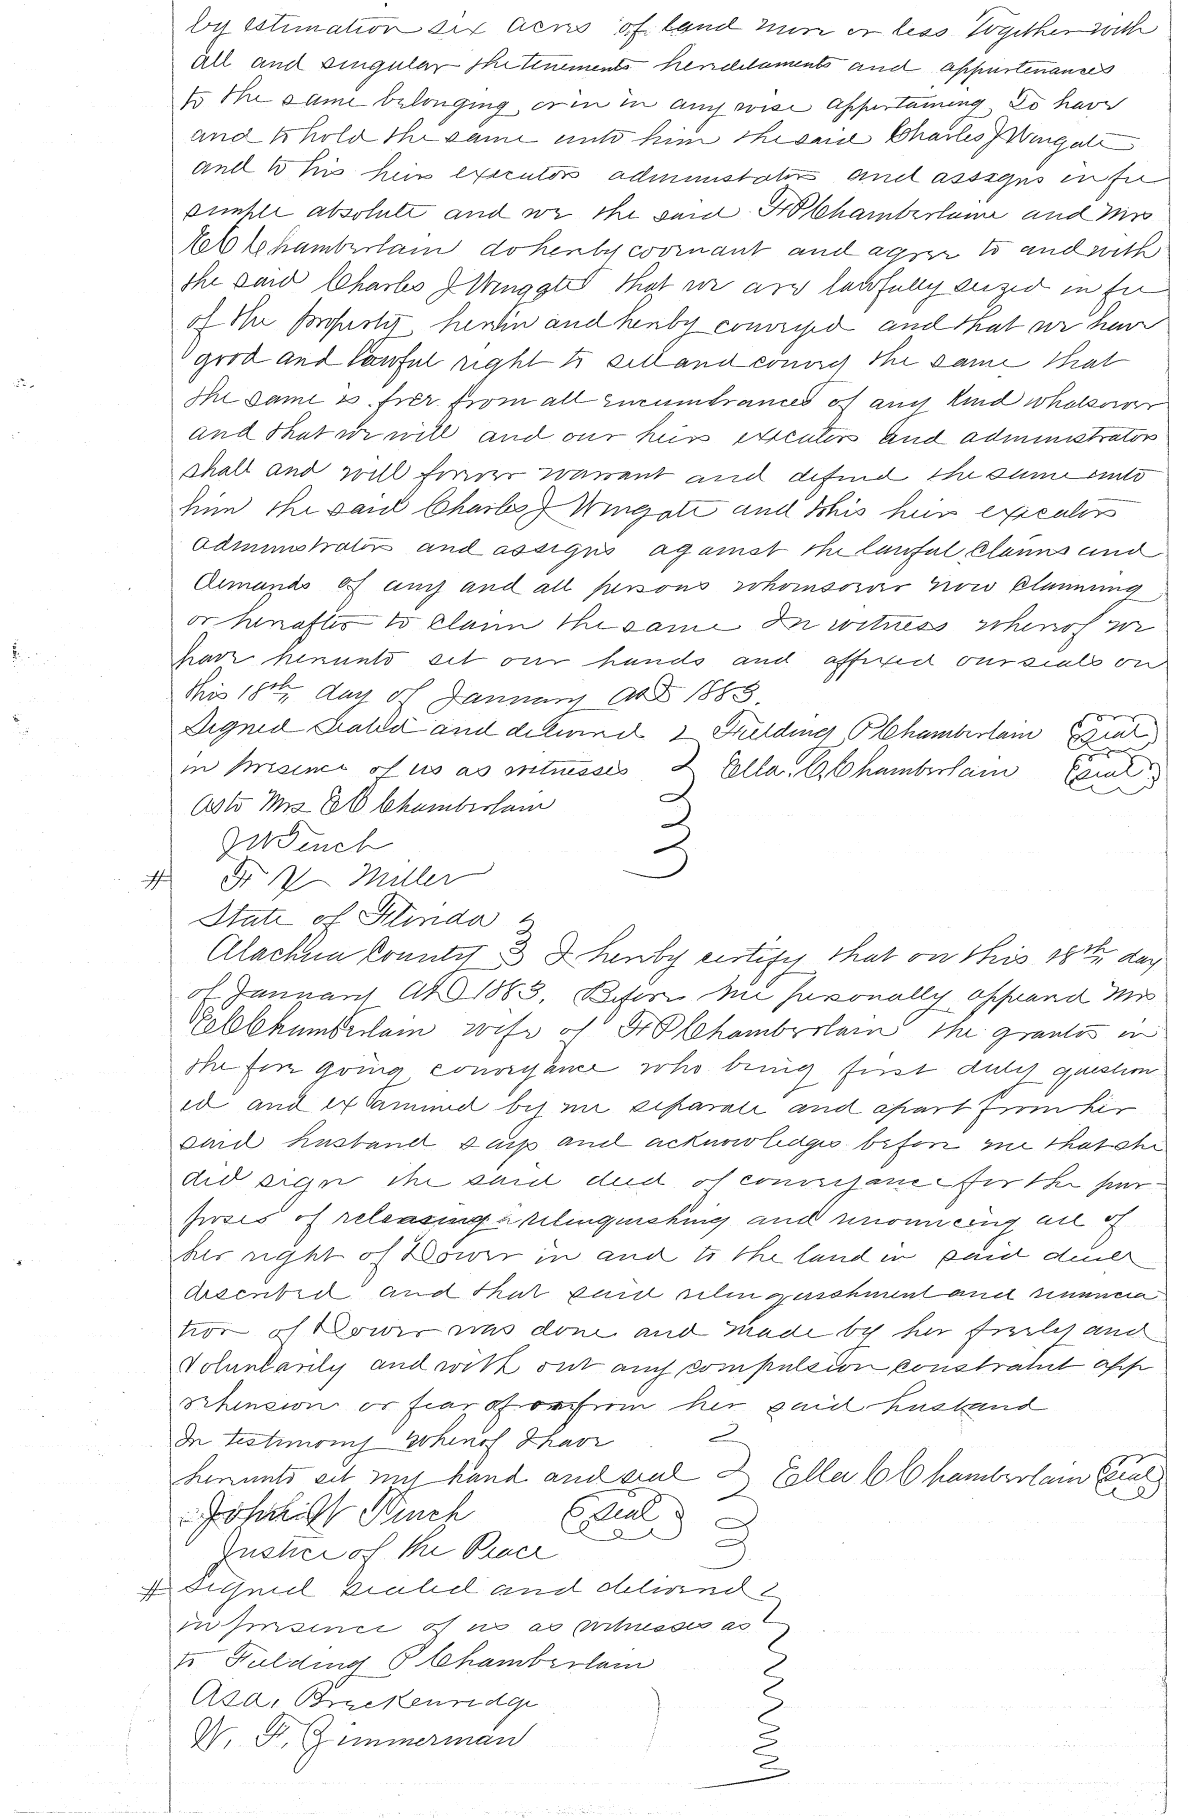 by estimation six acres of land more or less Together with
all and singular the tenements hereditaments and appurtenances
to the same belonging or in in any wise appertaining To have
and to hold the same unto him the said Charles J Wingate
and to his heirs executors administators and assigns in fee
simple absolute and we the said F P Chamberlaine and Mrs
E C Chamberlain do hereby covenant and agree to and with
the said Charles J Winggte that we are lawfully seized in fee
of the property herein and hereby conveyed and that we have
good and lawful right to sell and convey the same that
the same is free from all encumbrances of any kind whatsoever
and that we will and our heirs executors and administrators
shall and will forever warrant and defend the same unto
him the said Charles J Wingate and to his heirs executors
administrators and assigns against the lawful claims and
demands of any and all persons whomsoever now claiming
or hereafter to claim the same In witness whereof we
have hereunto set our hands and affixed our seals on
this 18th day of January A D 1883.
Signed Sealed and delivered Fielding P Chamberlain Seal
in presence of us as witnesses Ella. C. Chamberlain Seal
as to Mrs E C Chamberlain
J W Tench
# F Y Miller
State of Florida
Alachua County I hereby certify that on this 18th day
of January A D 1883. Before me personally appeared Mrs
E C Chamberlain wife of F P Chamberlain the grantor in
the fore going conveyance who being first duly question
ed and examined by me separate and apart from her
said husband says and acknowledges before me that she
did sign the said deed of conveyance for the pur-
poses of releasing relinquishing and renouncing all of
her right of Dower in and to the land in said deed
described and that said relinquishment and renuncia
tion of Dower was done and made by her freely and
Voluntarily and with out any compulsion constraint app
rehension or fear of or from her said husband
In testimony whereof I have
hereunto set my hand and seal Ella C Chamberlain Seal
John W Tench Seal
Justice of the Peace
# Signed sealed and delivered
in presence of us as witnesses as
to Fielding P Chamberlain
Asa. Breckenredge
W. F. Zimmerman